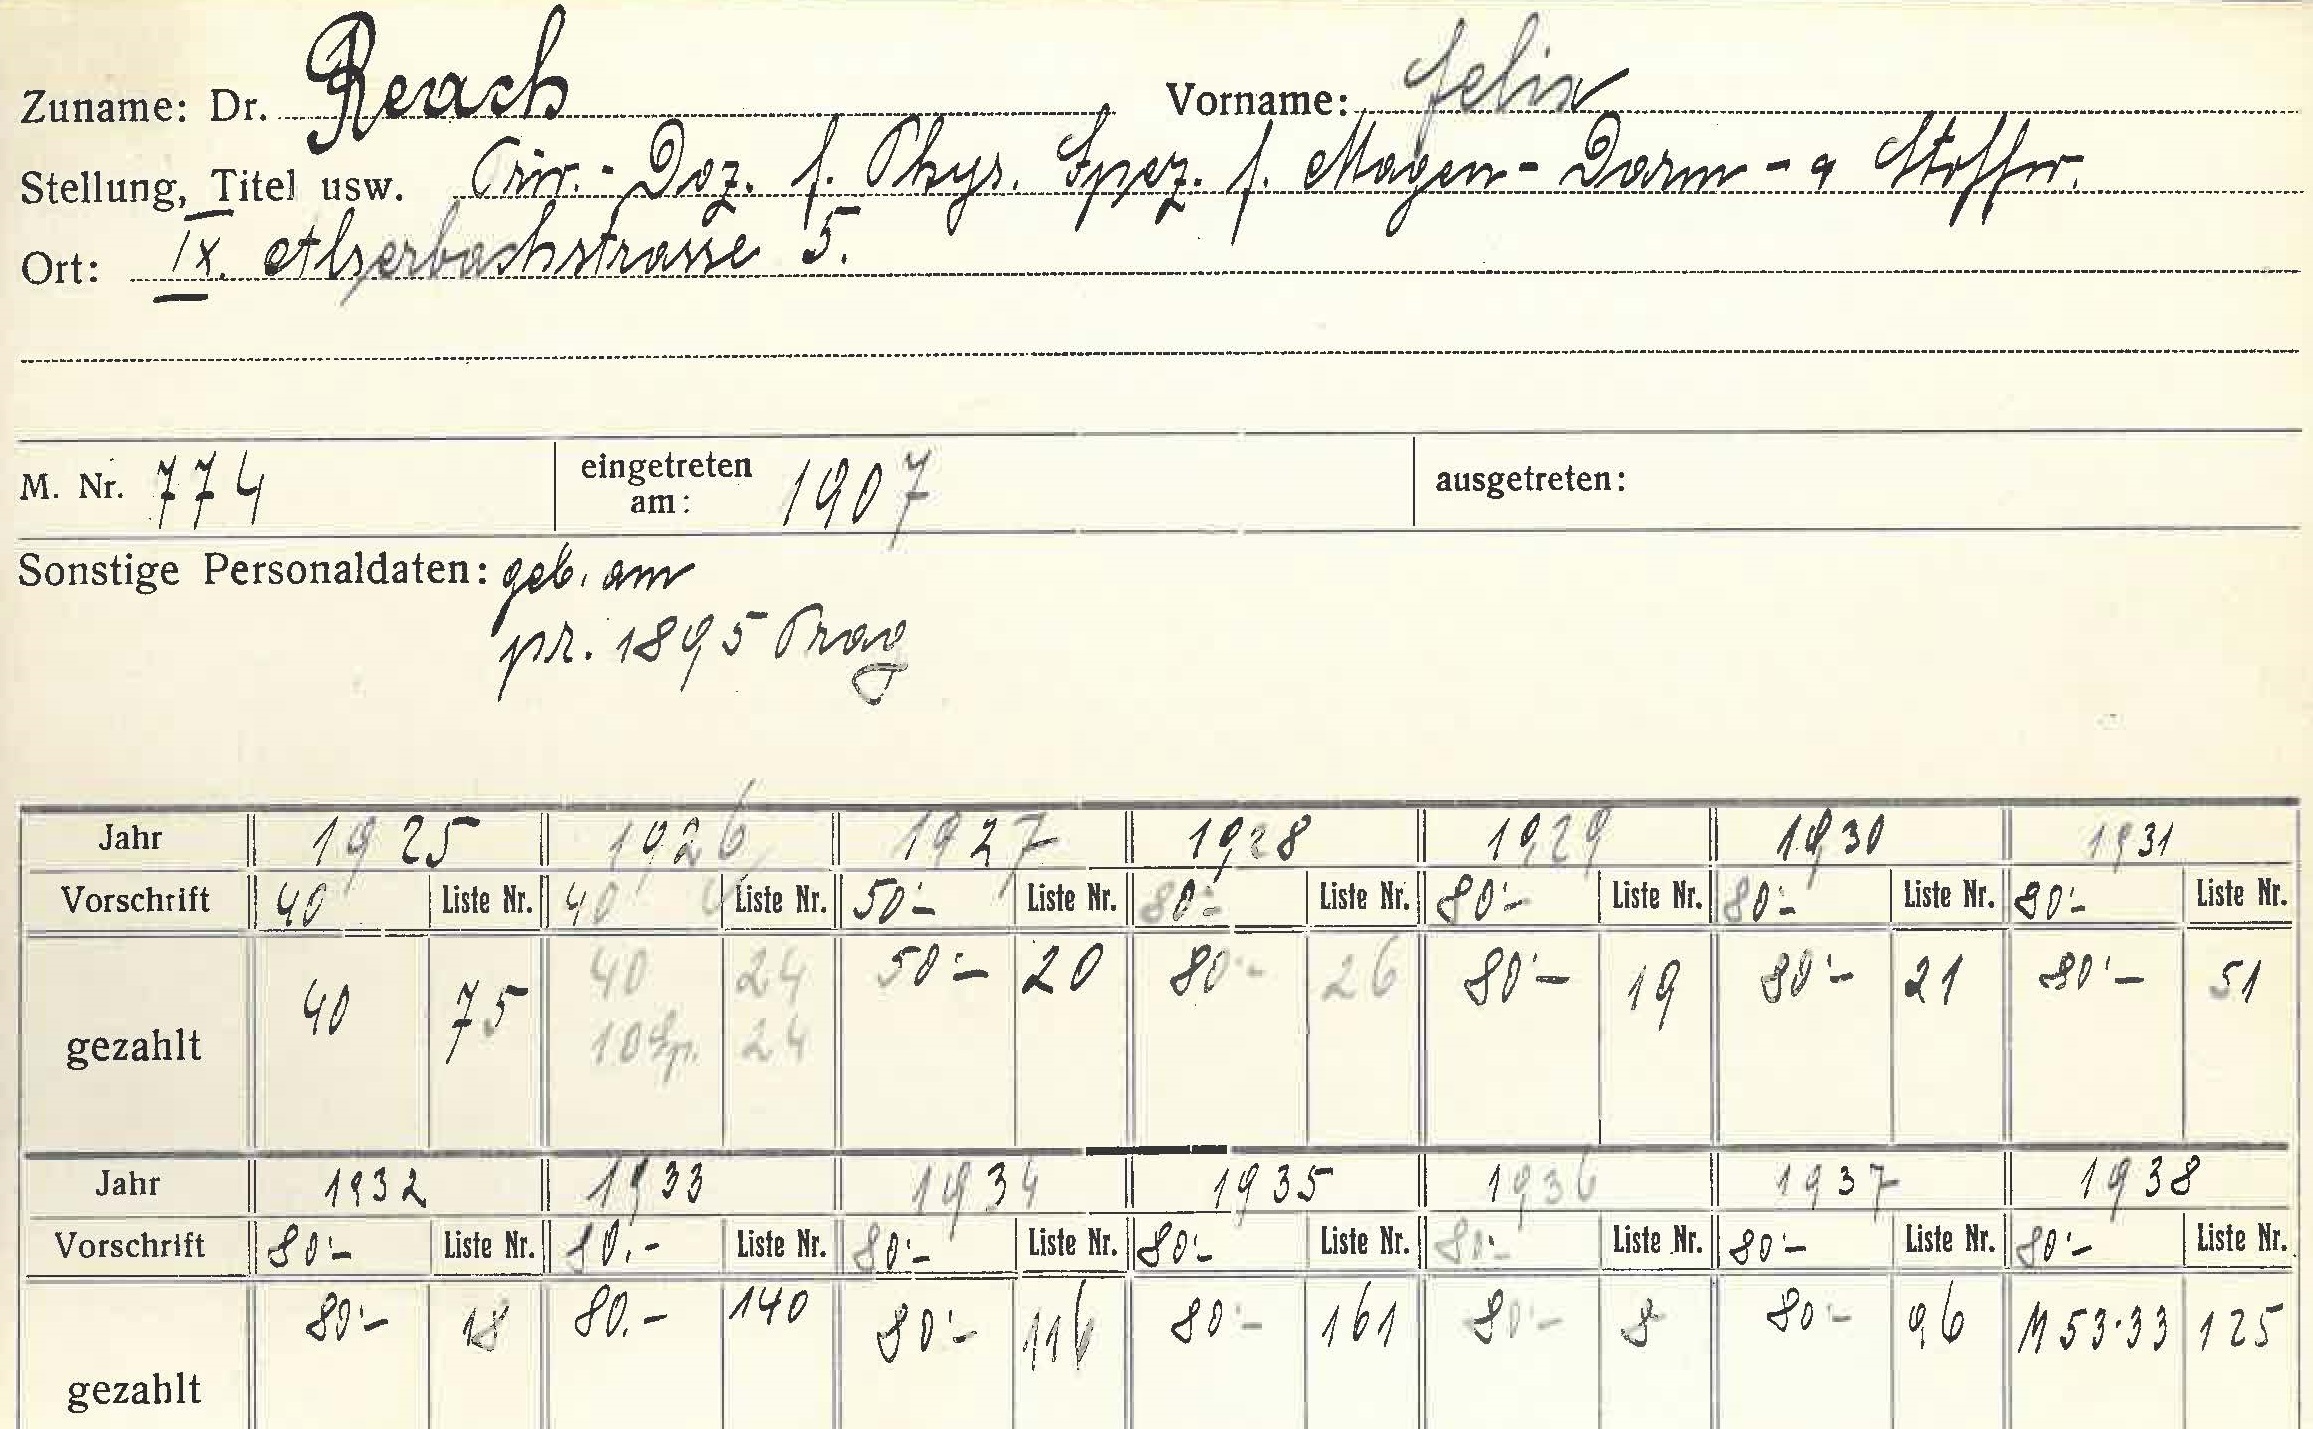 Zuname: Dr. Reach Vorname: Felix
Stellung, Titel usw. Priv.-Doz. f. Phys. Spez. f. Magen-Darm- Stoffw.
Ort: IX. Alserbachstrasse 5.
M. Nr. 774 eingetreten am: 1907 ausgetreten:
Sonstige Personaldaten: geb. am
pr. 1895 Prag
Jahr 1925 1926 1927 1928 1929 1930 1931
Vorschrift 40 Liste Nr. 40 Liste Nr. 50'- Liste Nr. 80'- Liste Nr. 80'- Liste Nr. 80'- Liste Nr. 80'- Liste Nr.
gezahlt 40 75 40 24 50'- 20 80'- 26 80'- 19 80'- 21 80'- 51
10 Sp. 24
Jahr 1932 1933 1934 1935 1936 1937 1938
Vorschrift 80'- Liste Nr. 80.- Liste Nr. 80'- Liste Nr. 80'- Liste Nr. 80'- Liste Nr. 80'- Liste Nr. 80'- Liste Nr.
gezahlt 80'- 18 80.- 140 80'- 116 80'- 161 80'- 8 80'- 96 M 53.33 125